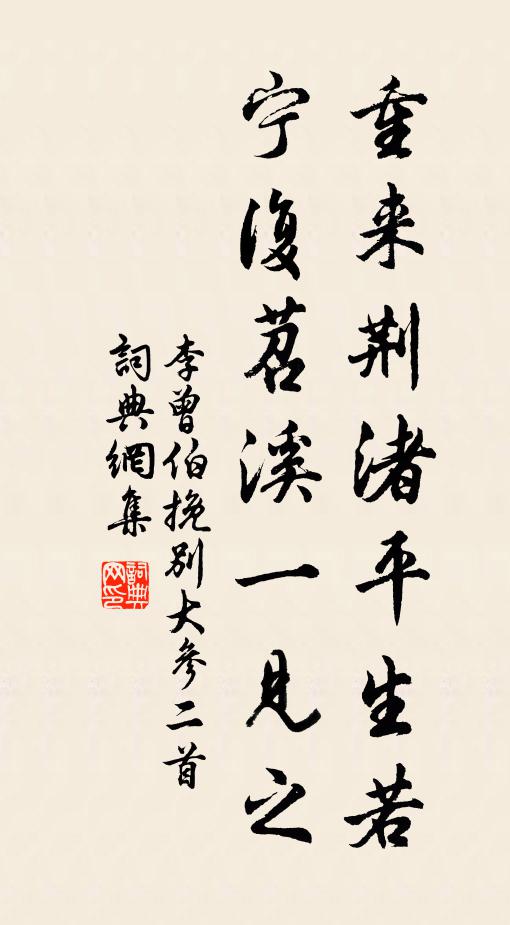 重来荆渚平生若
宁復苕溪一見之
李曾伯挽别大參二首
詞典網集
詞典网印